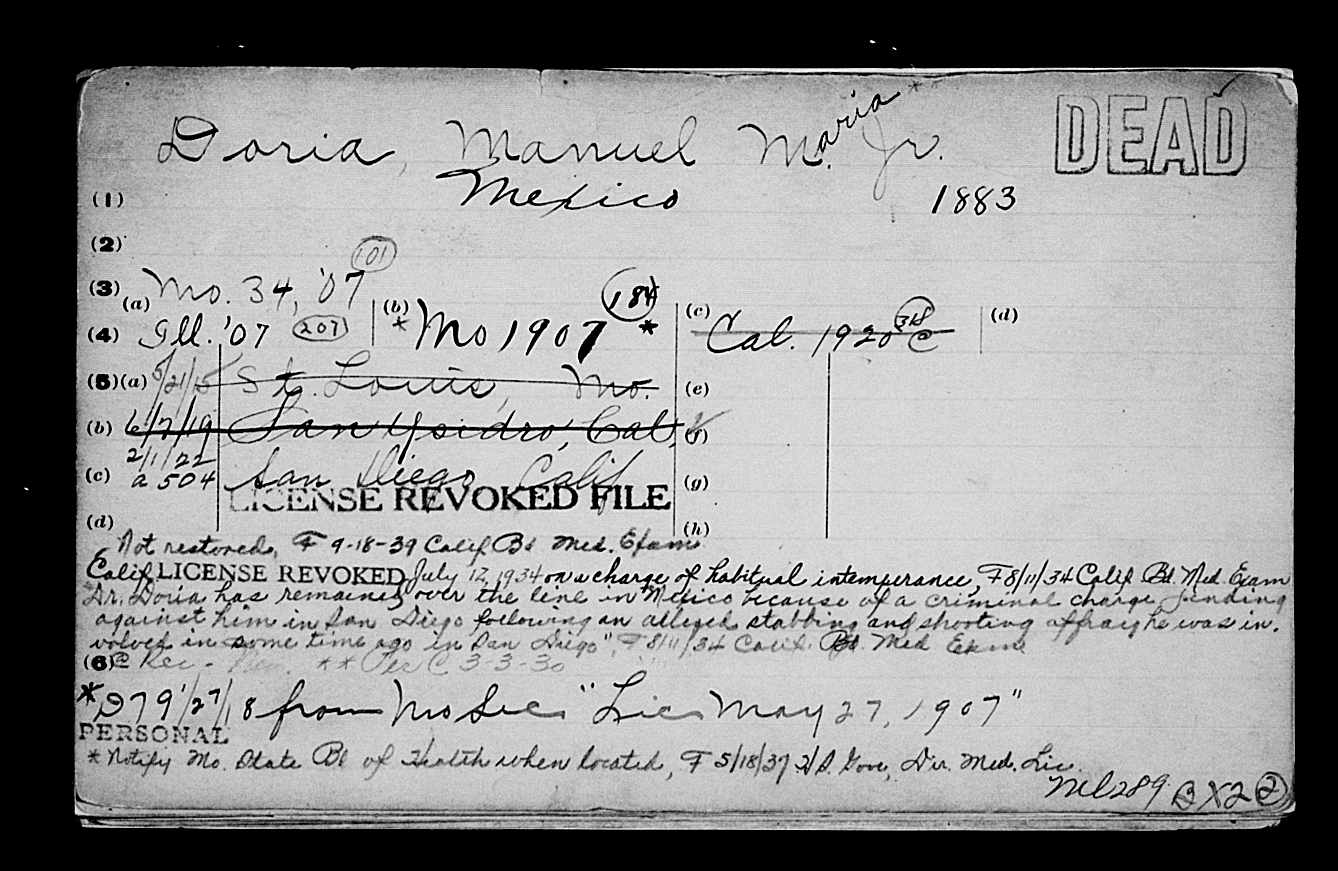 Doria, Manuel Maria Jr. **
DEAD
(1) Mexico 1883
(2)
(3) (a) Mo. 34, '07 101
(4) Ill. '07 207 (b) * Mo 1907 184 * (c) Cal. 1920 318 C (d)
(5) (a) 5/21/15 St. Louis, Mo. (e)
(b) 6/7/19 San Ysidro, Cal. (f)
2/1/22
(c) a 504 San Diego Calif (g)
LICENSE REVOKED FILE
(d) (h)
Not restored, F 9-18-39 Calif Bd Med. Exam
Calif LICENSE REVOKED July 12, 1934 on a charge of habitual intemperance, F 8/11/34 Calif Bd. Med Exam
"Dr. Doria has remained over the line in Mexico because of a criminal charge pending
against him in San Diego following an alleged stabbing and shooting affray he was in-
volved in some time ago in San Diego", F 8/11/34 Calif. Bd Med Exam
(6) ** C 3-3-30
* 279 1/27/18 from Mo Sec "Lic May 27, 1907"
PERSONAL
* Notify Mo. State Bd of Health when located, F 5/18/37 Gove, Dir. Med. Lic.
289 X2 2